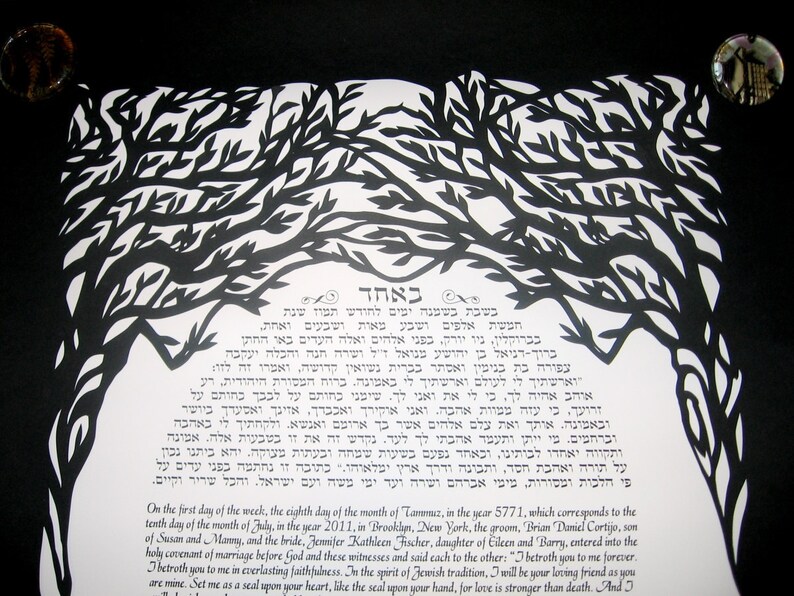 באחד
בשבת בשמנה ימים לחודש תמוז שנת
חמשת אלפים ושבע מאות ושבעים ואחת,
בברוקלין, ניו יורק, בפני אלהים ואלה העדים באו החתן
ברוך-דניאל בן יהושע מנואל ז״ל ושרה חנה והכלה יעקבה
צפורה בת בנימין ואסתר בברית נשואין קדושה, ואמרו זה לזו:
״וארשתיך לי לעולם וארשתיך לי באמונה. ברוח המסורת היהודית, רע
אוהב אהיה לך, כי לי את ואני לך. שימני כחותם על לבבך כחותם על
זרועך, כי עזה ממוות אהבה. ואני אוקירך ואכבדך, אזינך ואסעדך ביושר
ובאמונה. אותך ואת צלם אלהים אשר בך ארומם ואנשא. ולקחתיך לי באהבה
וברחמים. מי ייתן ותעמד אהבתי לך לעד. נקדש זה את זו בטבעות אלה. אמונה
ותקווה יאחדו לבותינו, ובאחד נפעם בשעות שמחה ובעתות מצוקה. יהא ביתנו נכון
על תורה ואהבת חסד, ותבונה ודרך ארץ ימלאוהו.״ כתובה זו נחתמה בפני עדים על
פי הלכות ומסורות, מימי אברהם ושרה ועד ימי משה ועם ישראל. והכל שריר וקיים.
On the first day of the week, the eighth day of the month of Tammuz, in the year 5771, which corresponds to the
tenth day of the month of July, in the year 2011, in Brooklyn, New York, the groom, Brian Daniel Cortijo, son
of Susan and Manny, and the bride, Jennifer Kathleen Fischer, daughter of Eileen and Barry, entered into the
holy covenant of marriage before God and these witnesses and said each to the other: “I betroth you to me forever.
I betroth you to me in everlasting faithfulness. In the spirit of Jewish tradition, I will be your loving friend as you
are mine. Set me as a seal upon your heart, like the seal upon your hand, for love is stronger than death. And I